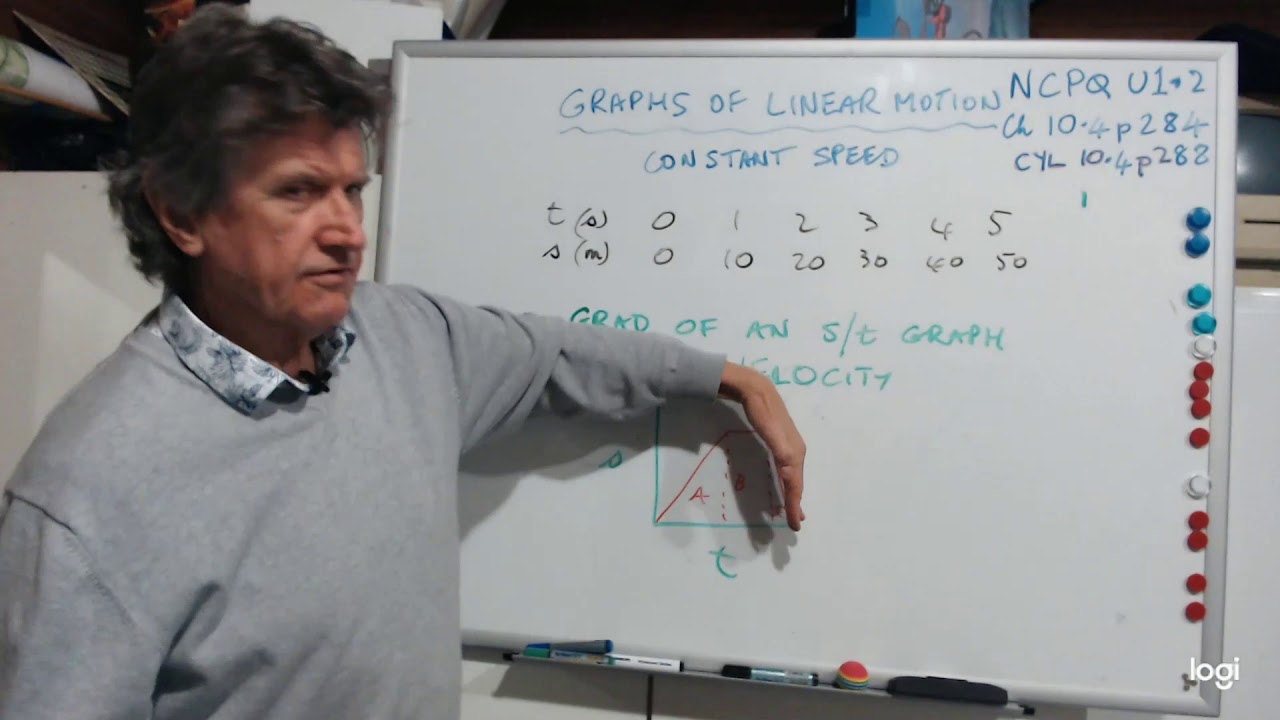 GRAPHS OF LINEAR MOTION
NCPQ U1.2
Ch 10.4 p 284
CYL 10.4 p 288
CONSTANT SPEED
t (s) 0 1 2 3 4 5
s (m) 0 10 20 30 40 50
GRAD OF AN S/t GRAPH
VELOCITY
s
A
B
t
logi